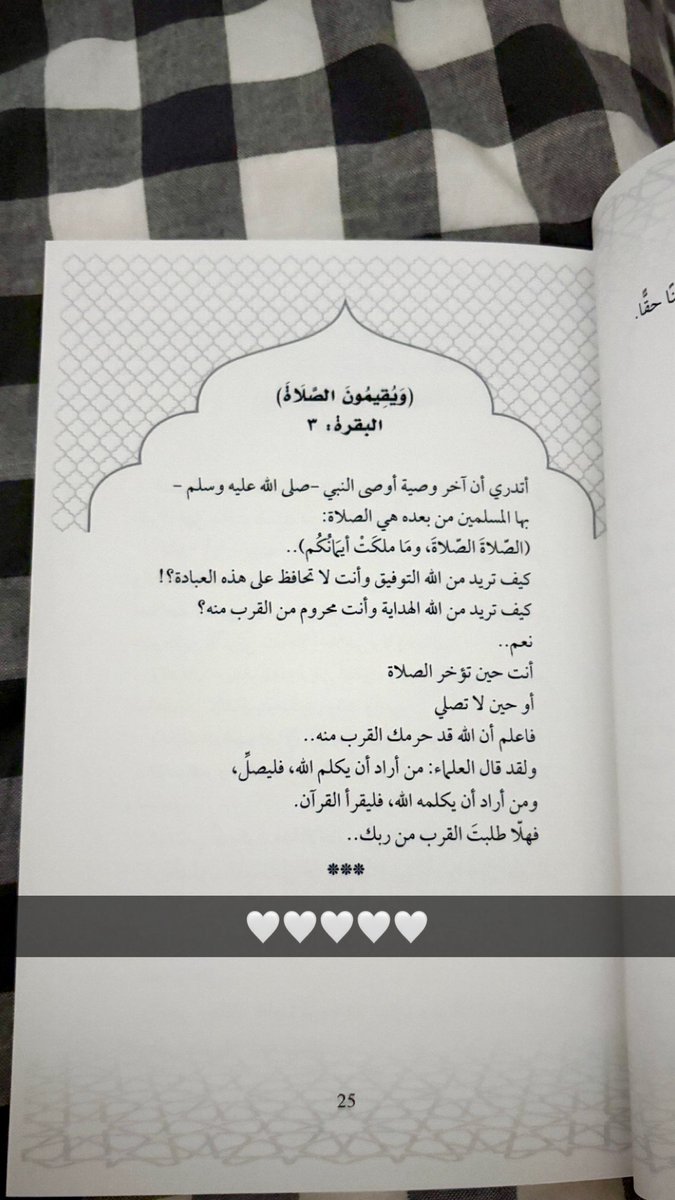 (وَيُقِيمُونَ الصَّلَاةَ)
البقرة: ٣
أتدري أن آخر وصية أوصى النبي -صلى الله عليه وسلم-
بها المسلمين من بعده هي الصلاة:
(الصّلاةَ الصّلاةَ، ومَا ملكَتْ أيمَانُكُم)..
كيف تريد من الله التوفيق وأنت لا تحافظ على هذه العبادة؟!
كيف تريد من الله الهداية وأنت محروم من القرب منه؟
نعم..
أنت حين تؤخر الصلاة
أو حين لا تصلي
فاعلم أن الله قد حرمك القرب منه..
ولقد قال العلماء: من أراد أن يكلم الله، فليصلِّ،
ومن أراد أن يكلمه الله، فليقرأ القرآن.
فهلّا طلبتَ القرب من ربك..
***
🤍🤍🤍🤍🤍
25
حقًّا.